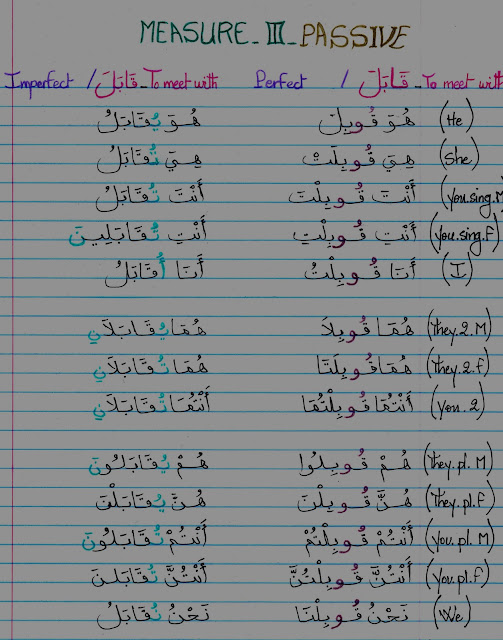 MEASURE_III_PASSIVE
Imperfect / قَابَلَ_To meet with Perfect / قَابَلَ_To meet with
هُوَ يُقَابَلُ هُوَ قُوبِلَ (He)
هِيَ تُقَابَلُ هِيَ قُوبِلَتْ (she)
أَنْتَ تُقَابَلُ أَنْتَ قُوبِلْتَ (you.sing.M
أَنْتِ تُقَابَلِينَ أَنْتِ قُوبِلْتِ (you.sing.f)
أَنَا أُقَابَلُ أَنَا قُوبِلْتُ (I)
هُمَا يُقَابَلاَنِ هُمَا قُوبِلاَ (They.2.M)
هُمَا تُقَابَلاَنِ هُمَا قُوبِلَتَا (They.2.f)
أَنْتُمَا تُقَابَلاَنِ أَنْتُمَا قُوبِلْتُمَا (you.2)
هُمْ يُقَابَلُونَ هُمْ قُوبِلُوا (They.pl.M)
هُنَّ يُقَابَلْنَ هُنَّ قُوبِلْنَ (They.pl.F)
أَنْتُمْ تُقَابَلُونَ أَنْتُمْ قُوبِلْتُمْ (you.pl.M)
أَنْتُنَّ تُقَابَلْنَ أَنْتُنَّ قُوبِلْتُنَّ (you.pl.f)
نَحْنُ نُقَابَلُ نَحْنُ قُوبِلْنَا (We)